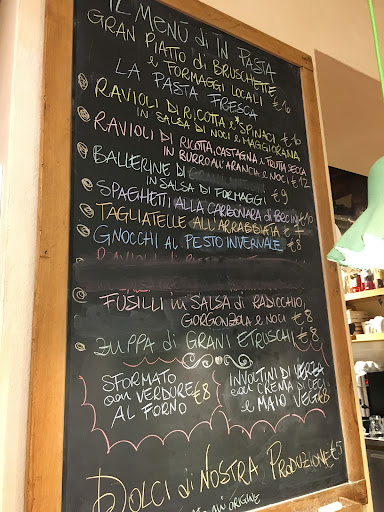 IL MENÙ di IN PASTA
GRAN PIATTO di BRUSCHETTE
e FORMAGGI LOCALI €16
LA PASTA FRESCA
RAVIOLI DI RICOTTA e SPINACI
IN SALSA DI NOCI e MAGGIORANA
RAVIOLI DI RICOTTA, CASTAGNA e FRUTTA SECCA
IN BURRO ALL'ARANCIA e NOCI €12
BALLERINE DI
IN SALSA DI FORMAGGI €9
SPAGHETTI ALLA CARBONARA di
TAGLIATELLE ALL'ARRABBIATA €7
GNOCCHI AL PESTO INVERNALE €8
FUSILLI in SALSA di RADICCHIO,
GORGONZOLA e NOCI €8
ZUPPA di GRANI ETRUSCHI €8
SFORMATO
con VERDURE €8
AL FORNO
INVOLTINI DI VERZA
con CREMA di CECI
e MAIO VEG €8
DOLCI di NOSTRA PRODUZIONE €5
ORIGINE